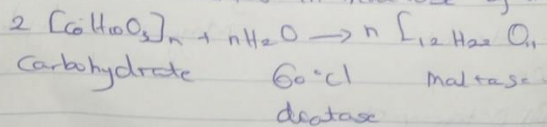 2 [C6 H10 O5]n + nH2O → n C12 H22 O11
Carbohydrate 60°c maltase
diatase